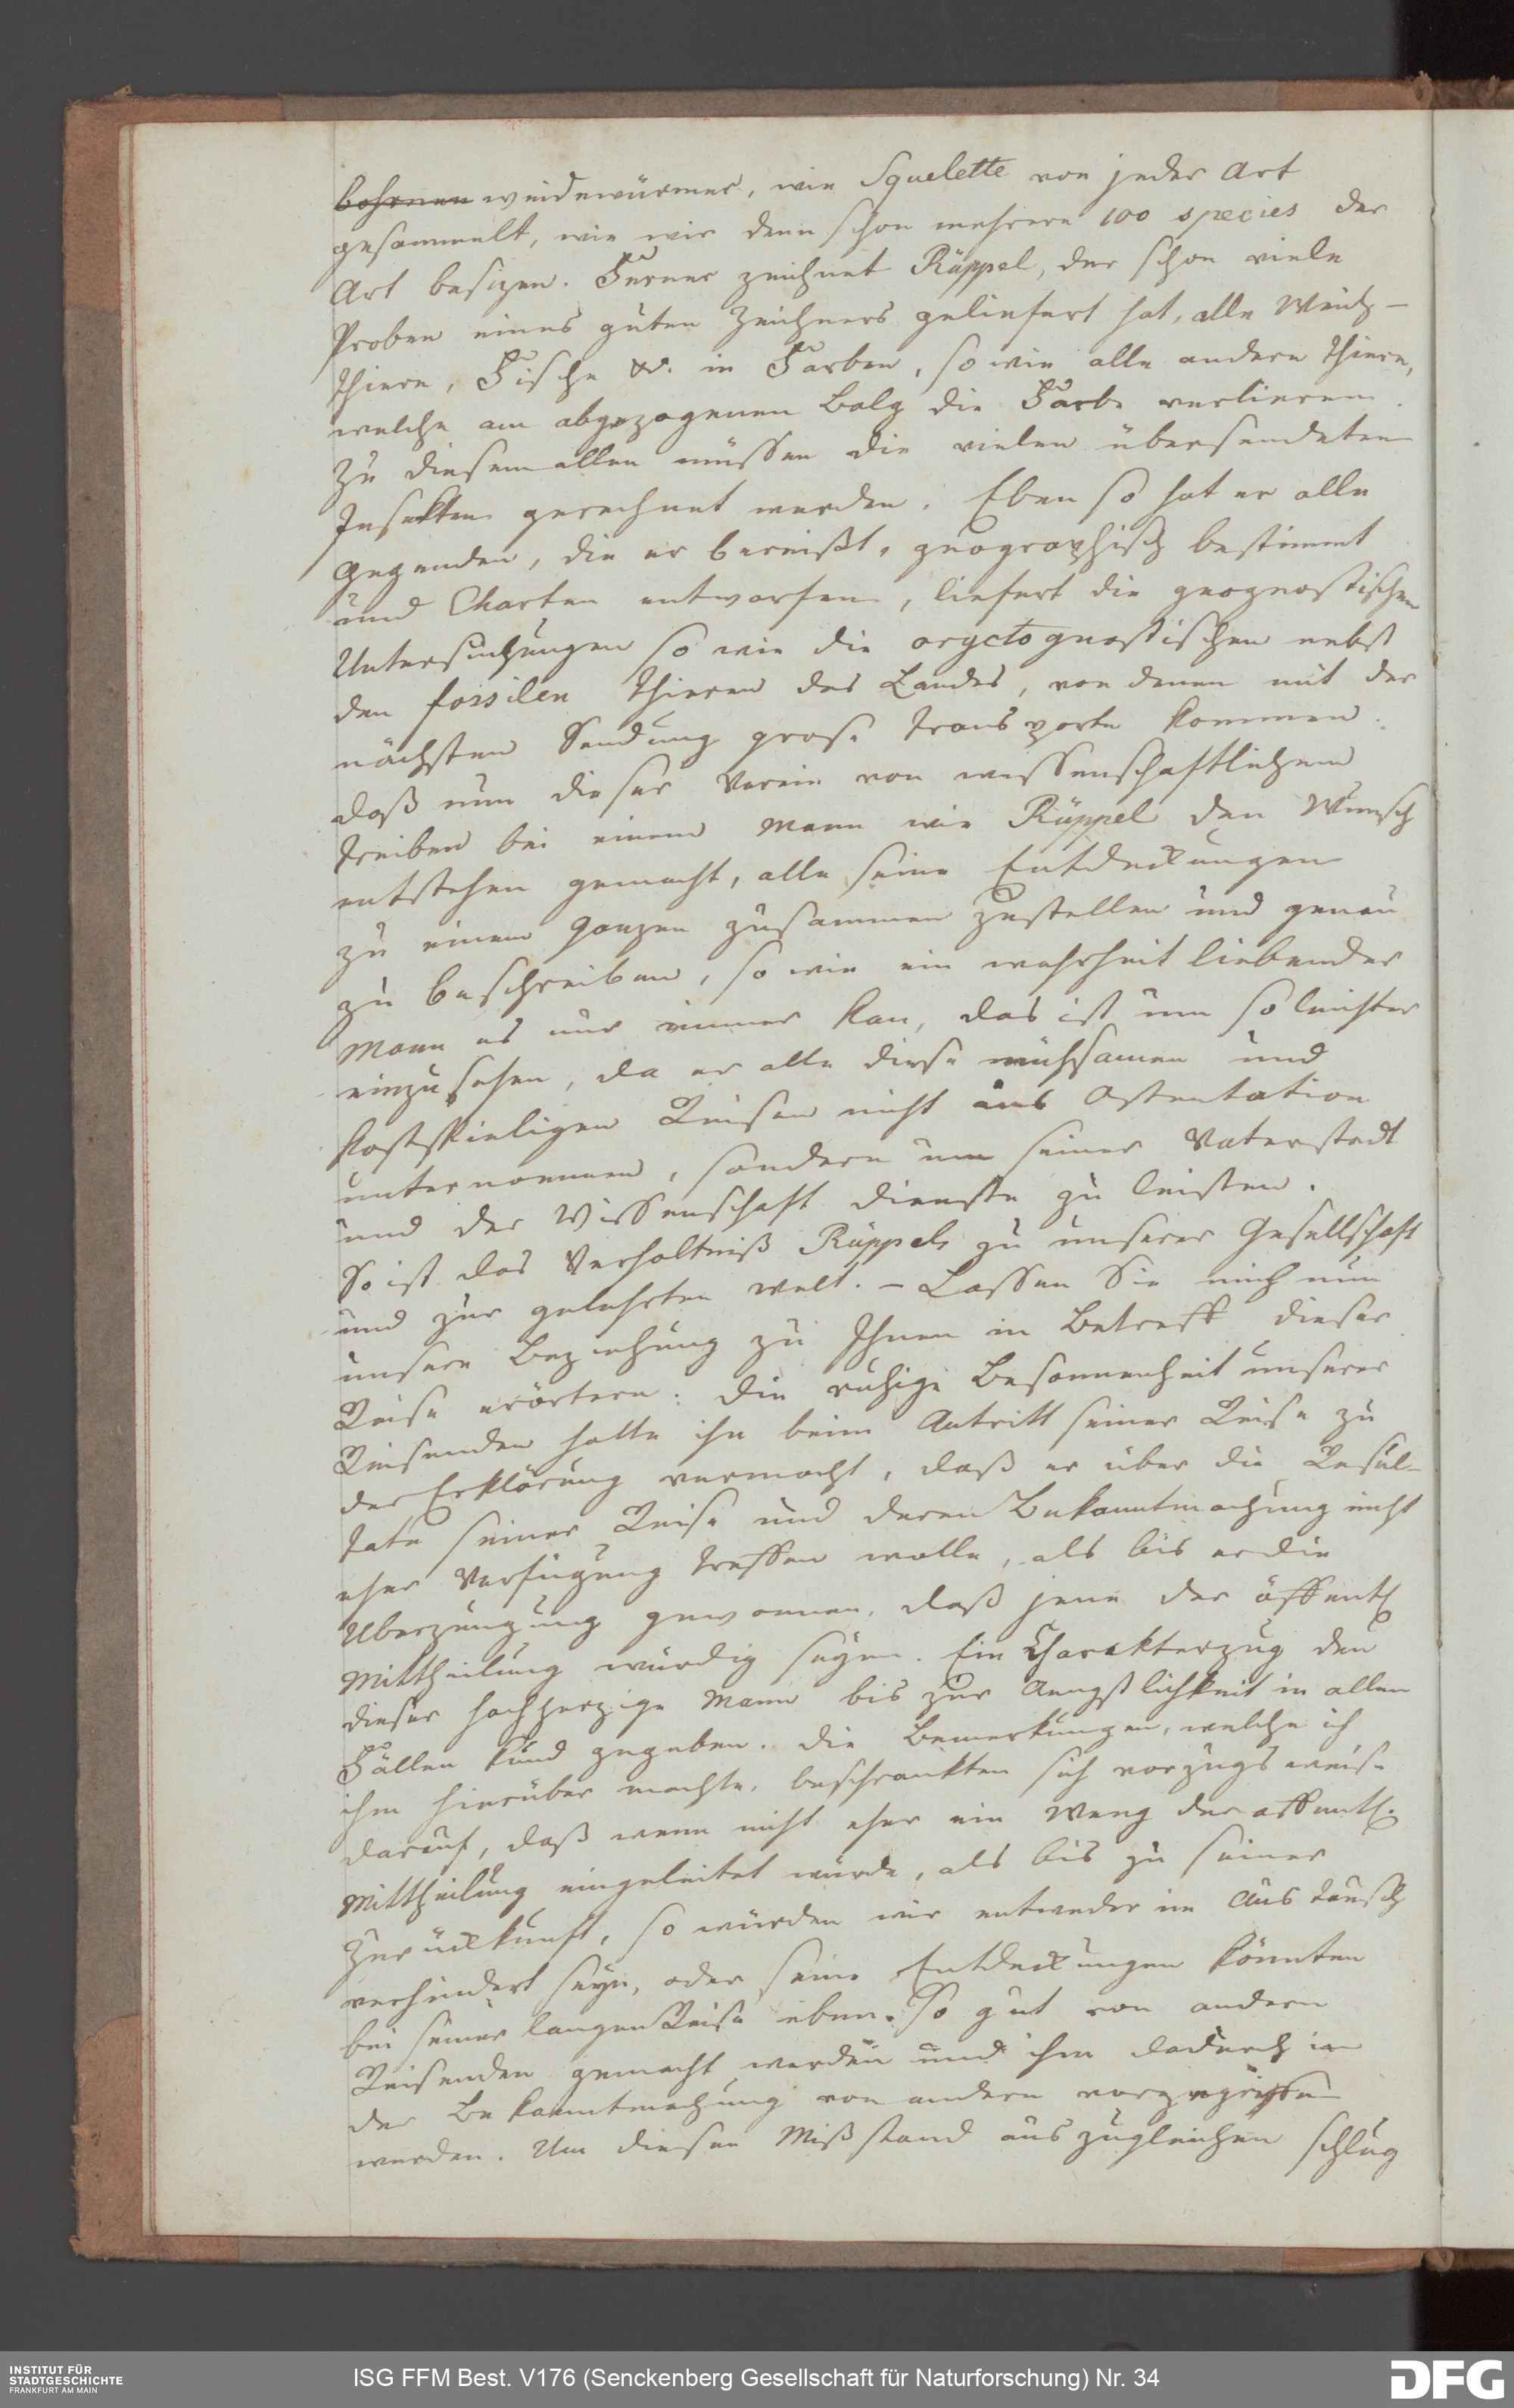 bohrnen weidewürmer, wie Squelette von jeder Art
gesammelt, wie wir denn schon mehrere 100 species der
Art besizen. Ferner zeichnet Rüppel, der schon viele
Proben eines guten Zeichners geliefert hat, alle Weich-
thiere, Fische &. in Farben, so wie alle andere Thiere,
welche am abgezogenen Balg die Farbe verlieren.
Zu diesem allen müssen die vielen übersendeten
Insekten gerechnet werden. Eben so hat er alle
Gegenden, die er bereißt, geographisch bestimmt
und Charten entworfen, liefert die geognostischen
Untersuchungen so wie die oryctognostischen nebst
den fossilen Thieren des Landes, von denen mit der
nächsten Sendung grose Transporte kommen.
Daß nun dieser Verein von wissenschaftlichem
Treiben bei einem Mann wie Rüppel den Wunsch
entstehen gemacht, alle seine Entdeckungen
zu einem Ganzen zusammen zustellen und genau
zu beschreiben, so wie ein wahrheit liebender
Mann es nur immer kan, das ist um so leichter
einzusehen, da er alle diese mühsamen und
kostspieligen Reisen nicht aus Ostentation
unternommen, sondern um seiner Vaterstadt
und der Wissenschaft Dienste zu leisten.
So ist das Verhaltniß Rüppels zu unserer Gesellschaft
und zur gelehrten Welt. – Lassen Sie mich nun
unsere Beziehung zu Ihnen in Betreff dieser
Reise erörtern: Die ruhige Besonnenheit unseres
Reisenden hatte ihn beim Antritt seiner Reise zu
der Erklärung vermocht, daß er über die Resul-
tate seiner Reise und deren Bekanntmachung nicht
eher Verfügung treffen wolle, als bis er die
Uberzeugung gewonnen, daß jene der öffentl
Mittheilung würdig seyen. Ein Charakterzug den
dieser hochherzige Mann bis zur Aengstlichkeit in allen
Fällen kund gegeben. Die Bemerkungen, welche ich
ihm hierüber machte, beschrankten sich vorzugsweise
darauf, daß wenn nicht eher ein Weeg der öffentl.
Mittheilung eingeleitet würde, als bis zu seiner
Zurückkunft, so würden wir entweder im Austausch
verhindert seyn, oder seine Entdeckungen könnten
bei seiner langen Reise eben so gut von andern
Reisenden gemacht werden und ihm dadurch in
der Bekanntmachung von andern vorgegriffen
werden. Um diesen Mißstand auszugleichen schlug
INSTITUT FÜR
STADTGESCHICHTE
FRANKFURT AM MAIN
ISG FFM Best. V176 (Senckenberg Gesellschaft für Naturforschung) Nr. 34
DFG